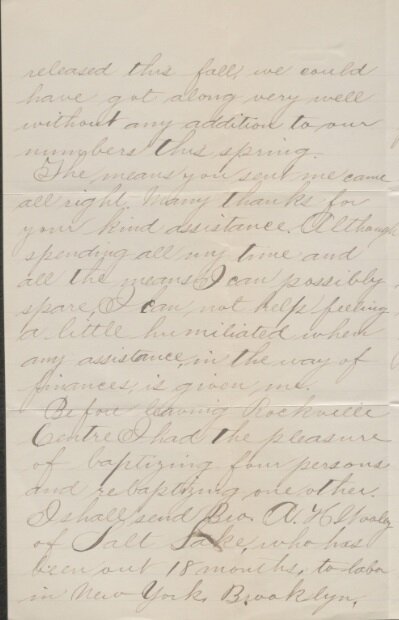 released this fall, we could
have got along very well
without any addition to our
numbers this spring.
The means you sent me came
all right. Many thanks for
your kind assistance. Although
spending all my time and
all the means I can possibly
spare, I can not help feeling
a little humiliated when
any assistance, in the way of
finances, is given me.
Before leaving Rockville
Centre I had the pleasure
of baptizing four persons
and rebaptizing one other.
I shall send Bro. A. H. Wooley
of Salt Lake, who has
been out 18 months, to labor
in New York, Brooklyn,